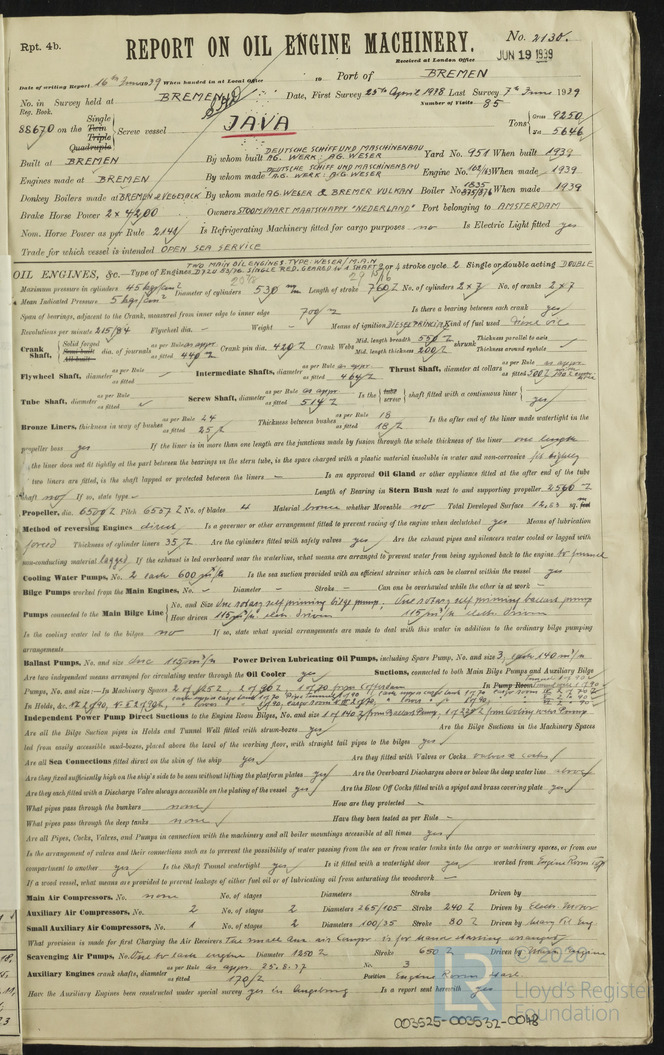 Rpt. 4b.
REPORT ON OIL ENGINE MACHINERY.
No. 2130.
Received at London Office
JUN 19 1939
Date of writing Report 16th June 1939 When handed in at Local Office 19 Port of BREMEN
No. in Survey held at BREMEN Date, First Survey 25th April 1938 Last Survey 7th June 1939
Reg. Book. Number of Visits 85
88670 on the Single Twin Triple Quadruple Screw vessel JAVA Tons Gross 9250 Net 5646
Built at BREMEN By whom built DEUTSCHE SCHIFF UND MASCHINENBAU A.G. WERK: A.G. WESER Yard No. 951 When built 1939
Engines made at BREMEN By whom made DEUTSCHE SCHIFF UND MASCHINENBAU A.G. WERK: A.G. WESER Engine No. When made 1939
Donkey Boilers made at BREMEN & VEGESACK By whom made A.G. WESER & BREMER VULKAN Boiler No. When made 1939
Brake Horse Power 2 x 4200 Owners STOOMVAART MAATSCHAPPY "NEDERLAND" Port belonging to AMSTERDAM
Nom. Horse Power as per Rule 2141 Is Refrigerating Machinery fitted for cargo purposes no Is Electric Light fitted yes
Trade for which vessel is intended OPEN SEA SERVICE
TWO MAIN OIL ENGINES TYPE: WESER/M.A.N
OIL ENGINES, &c.—Type of Engines D7ZU 53/76 SINGLE RED. GEARED TO 1 SHAFT 2 or 4 stroke cycle 2 Single or double acting DOUBLE
Maximum pressure in cylinders 45 kg/cm² Diameter of cylinders 530 Length of stroke 760 No. of cylinders 2 x 7 No. of cranks 2 x 7
Mean Indicated Pressure 5 kgs/cm²
Span of bearings, adjacent to the Crank, measured from inner edge to inner edge 700 Is there a bearing between each crank yes
Revolutions per minute 215/84 Flywheel dia. - Weight - Means of ignition DIESEL PRINCIPLE Kind of fuel used diesel oil
Crank Shaft, Solid forged Semi built All built dia. of journals as per Rule as appr. as fitted 440 Crank pin dia. 420 Crank Webs Mid. length breadth 550 Mid. length thickness 200 shrunk Thickness parallel to axis Thickness around eyehole
Flywheel Shaft, diameter as per Rule as fitted Intermediate Shafts, diameter as per Rule as appr. as fitted 464 Thrust Shaft, diameter at collars as per Rule as appr. as fitted 500
Tube Shaft, diameter as per Rule as fitted Screw Shaft, diameter as per Rule as appr. as fitted 514 Is the tube screw shaft fitted with a continuous liner yes
Bronze Liners, thickness in way of bushes as per Rule 24 as fitted 25 Thickness between bushes as per Rule 18 as fitted 18 Is the after end of the liner made watertight in the
propeller boss yes If the liner is in more than one length are the junctions made by fusion through the whole thickness of the liner one length
the liner does not fit tightly at the part between the bearings in the stern tube, is the space charged with a plastic material insoluble in water and non-corrosive fit tightly
two liners are fitted, is the shaft lapped or protected between the liners - Is an approved Oil Gland or other appliance fitted at the after end of the tube
shaft no If so, state type - Length of Bearing in Stern Bush next to and supporting propeller 2560
Propeller, dia. 6500 Pitch 6557 No. of blades 4 Material bronze whether Moveable no Total Developed Surface 12,63 sq.
Method of reversing Engines direct Is a governor or other arrangement fitted to prevent racing of the engine when declutched yes Means of lubrication
forced Thickness of cylinder liners 35 Are the cylinders fitted with safety valves yes Are the exhaust pipes and silencers water cooled or lagged with
non-conducting material lagged If the exhaust is led overboard near the waterline, what means are arranged to prevent water from being syphoned back to the engine to funnel
Cooling Water Pumps, No. 2 each 600 m³/h Is the sea suction provided with an efficient strainer which can be cleared within the vessel yes
Bilge Pumps worked from the Main Engines, No. - Diameter - Stroke - Can one be overhauled while the other is at work -
Pumps connected to the Main Bilge Line No. and Size One rotary self priming bilge pump. One rotary self priming ballast pump
How driven 115 m³/h elec. driven 115 m³/h elec. driven
Is the cooling water led to the bilges no If so, state what special arrangements are made to deal with this water in addition to the ordinary bilge pumping
arrangements
Ballast Pumps, No. and size One 115 m³/h Power Driven Lubricating Oil Pumps, including Spare Pump, No. and size 3, each 140 m³/h
Are two independent means arranged for circulating water through the Oil Cooler yes Suctions, connected to both Main Bilge Pumps and Auxiliary Bilge
Pumps, No. and size:—In Machinery Spaces 1 of 70 from Cofferdam In Pump Room
In Holds, &c.
Independent Power Pump Direct Suctions to the Engine Room Bilges, No. and size 1 of 140 from Ballast Pump, 1 of from Cooling water Pump
Are all the Bilge Suction pipes in Holds and Tunnel Well fitted with strum-boxes yes Are the Bilge Suctions in the Machinery Spaces
led from easily accessible mud-boxes, placed above the level of the working floor, with straight tail pipes to the bilges yes
Are all Sea Connections fitted direct on the skin of the ship yes Are they fitted with Valves or Cocks
Are they fixed sufficiently high on the ship's side to be seen without lifting the platform plates yes Are the Overboard Discharges above or below the deep water line above
Are they each fitted with a Discharge Valve always accessible on the plating of the vessel yes Are the Blow Off Cocks fitted with a spigot and brass covering plate yes
What pipes pass through the bunkers none How are they protected -
What pipes pass through the deep tanks none Have they been tested as per Rule -
Are all Pipes, Cocks, Valves, and Pumps in connection with the machinery and all boiler mountings accessible at all times yes
Is the arrangement of valves and their connections such as to prevent the possibility of water passing from the sea or from water tanks into the cargo or machinery spaces, or from one
compartment to another yes Is the Shaft Tunnel watertight yes Is it fitted with a watertight door yes worked from Engine Room top
If a wood vessel, what means are provided to prevent leakage of either fuel oil or of lubricating oil from saturating the woodwork -
Main Air Compressors, No. none No. of stages Diameters Stroke Driven by
Auxiliary Air Compressors, No. 2 No. of stages 2 Diameters 265/105 Stroke 240 Driven by Elec. Motor
Small Auxiliary Air Compressors, No. 1 No. of stages 2 Diameters 100/35 Stroke 80 Driven by
What provision is made for first Charging the Air Receivers The small aux air Compr. is for hand starting arranged
Scavenging Air Pumps, No. One to each engine Diameter 1250 Stroke 650 Driven by Main Engine
Auxiliary Engines crank shafts, diameter as per Rule as appr. 25.8.37 as fitted 170 No. 3 Position Engine Room
Have the Auxiliary Engines been constructed under special survey yes in Augsburg Is a report sent herewith yes
© 2020
LR
Lloyd's Register
Foundation
003525-003532-0048